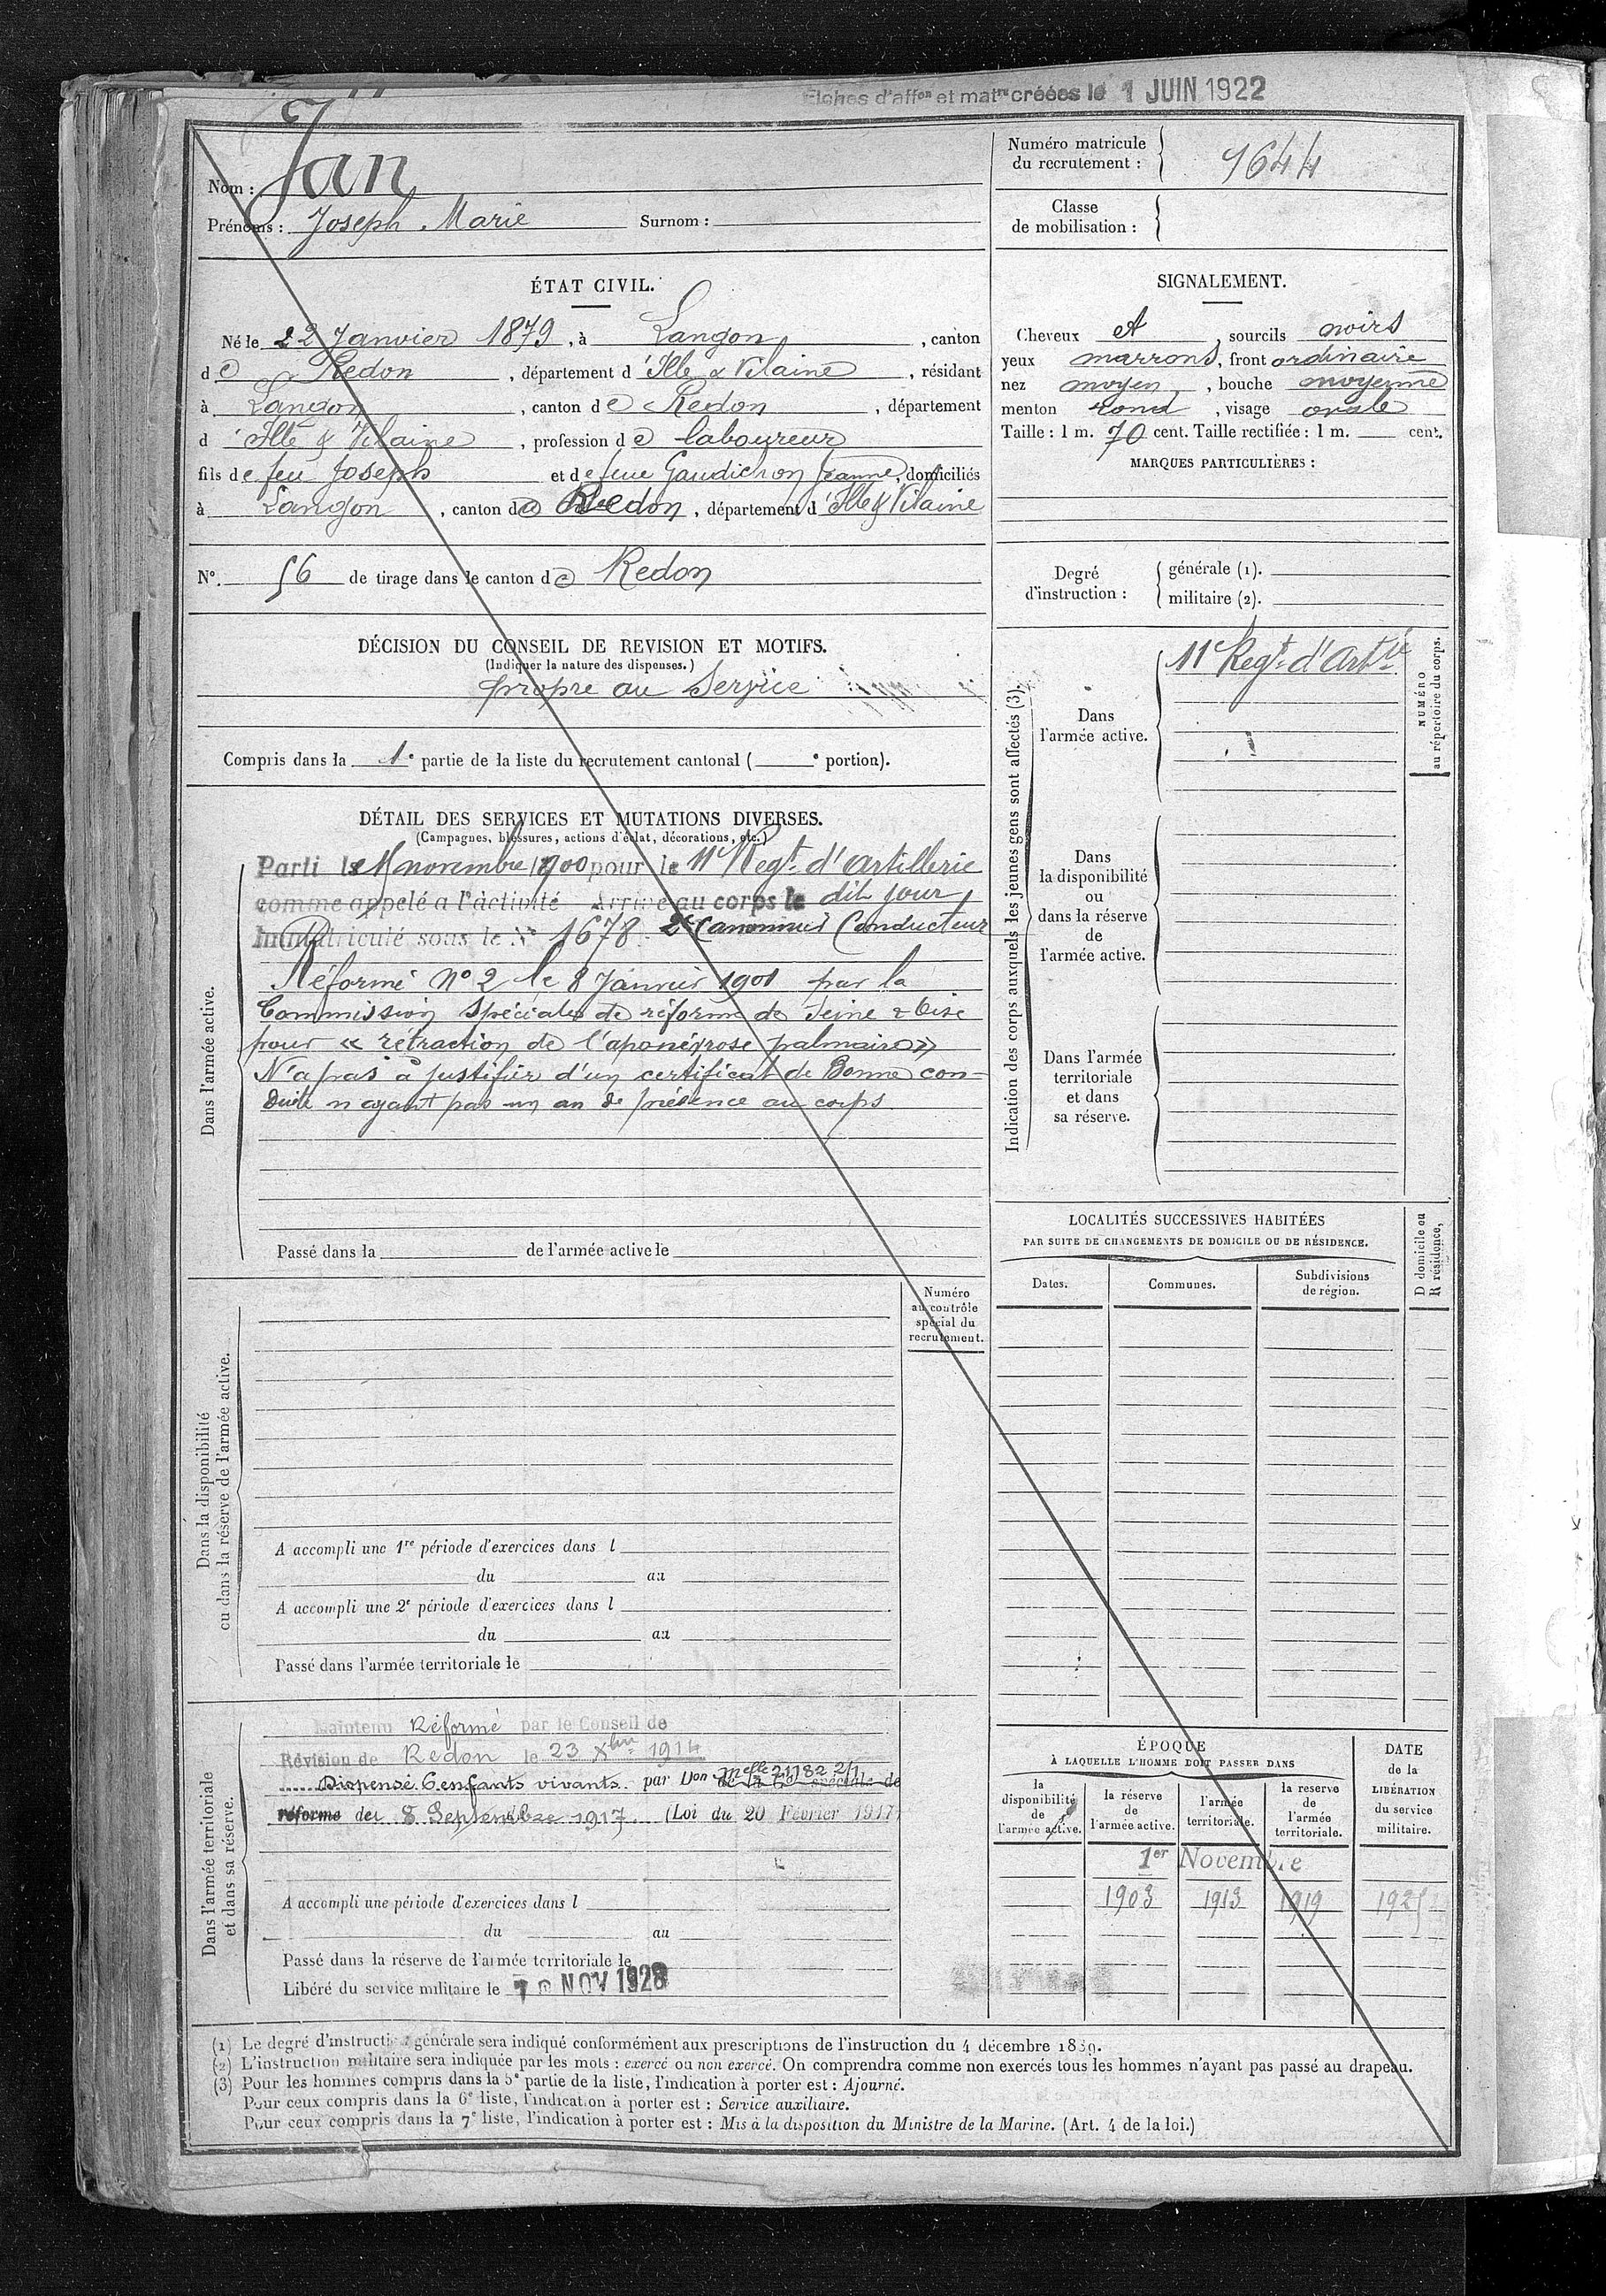 Fiches d'affon et matre créées le 1 JUIN 1922
Nom : Jan
Prénoms : Joseph Marie Surnom :
ÉTAT CIVIL.
Né le 22 Janvier 1879, à Langon, canton
de Redon, département d'Ille & Vilaine, résidant
à Langon, canton de Redon, département
d'Ille & Vilaine, profession de laboureur
fils de feu Joseph et de feue Gaudichon Jeanne, domiciliés
à Langon, canton de Redon, département d'Ille & Vilaine
N°. 56 de tirage dans le canton de Redon
DÉCISION DU CONSEIL DE REVISION ET MOTIFS.
(Indiquer la nature des dispenses.)
propre au Service
Compris dans la 1e partie de la liste du recrutement cantonal ( e portion).
DÉTAIL DES SERVICES ET MUTATIONS DIVERSES.
(Campagnes, blessures, actions d'éclat, décorations, etc.)
Dans l'armée active.
Parti le novembre 1900 pour le 11e Regt. d'artillerie
comme appelé a l'activité Arrivé au corps le dit jour
Immatriculé sous le N° 1678 2e Canonnier Conducteur
Réformé n° 2 le 8 Janvier 1901 par la
Commission Spéciale de réforme de Seine & Oise
pour « rétraction de l'aponévrose palmaire »
N'a pas à justifier d'un certificat de Bonne con-
duite n'ayant pas un an de présence au corps
Passé dans la de l'armée active le
Dans la disponibilité
ou dans la réserve de l'armée active.
Numéro
au contrôle
spécial du
recrutement.
A accompli une 1re période d'exercices dans l
du au
A accompli une 2e période d'exercices dans l
du au
Passé dans l'armée territoriale le
Dans l'armée territoriale
et dans sa réserve.
Maintenu Réformé par le Conseil de
Révision de Redon le 23 Xbre 1914
Dispensé 6 enfants vivants. par Don Melle 21182 2/1
de la Con spéciale de
réforme du 8 Septembre 1917. (Loi du 20 Février 1917)
A accompli une période d'exercices dans l
du au
Passé dans la réserve de l'armée territoriale le
Libéré du service militaire le 10 NOV 1928
Numéro matricule
du recrutement : 1644
Classe
de mobilisation :
SIGNALEMENT.
Cheveux et sourcils noirs
yeux marrons, front ordinaire
nez moyen, bouche moyenne
menton rond, visage ovale
Taille : 1 m. 70 cent. Taille rectifiée : 1 m. cent.
MARQUES PARTICULIÈRES :
Degré
d'instruction :
générale (1).
militaire (2).
Indication des corps auxquels les jeunes gens sont affectés (3).
Dans
l'armée active.
11e Regt. d'Artie
NUMÉRO
au répertoire du corps.
Dans
la disponibilité
ou
dans la réserve
de
l'armée active.
Dans l'armée
territoriale
et dans
sa réserve.
LOCALITÉS SUCCESSIVES HABITÉES
PAR SUITE DE CHANGEMENTS DE DOMICILE OU DE RÉSIDENCE.
Dates. Communes. Subdivisions
de région.
D domicile ou
R résidence,
ÉPOQUE
À LAQUELLE L'HOMME DOIT PASSER DANS
la
disponibilité
de
l'armée active.
la réserve
de
l'armée active.
l'armée
territoriale.
la reserve
de
l'armée
territoriale.
DATE
de la
LIBÉRATION
du service
militaire.
1er Novembre
1903 1913 1919 1925
(1) Le degré d'instruction générale sera indiqué conformément aux prescriptions de l'instruction du 4 décembre 1889.
(2) L'instruction militaire sera indiquée par les mots : exercé ou non exercé. On comprendra comme non exercés tous les hommes n'ayant pas passé au drapeau.
(3) Pour les hommes compris dans la 5e partie de la liste, l'indication à porter est : Ajourné.
Pour ceux compris dans la 6e liste, l'indication à porter est : Service auxiliaire.
Pour ceux compris dans la 7e liste, l'indication à porter est : Mis à la disposition du Ministre de la Marine. (Art. 4 de la loi.)